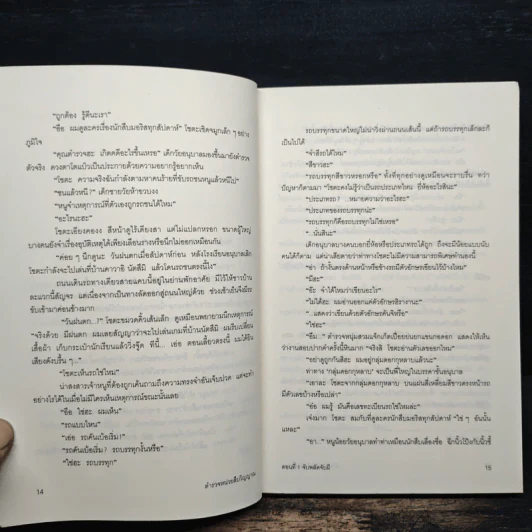 "ถูกต้อง รู้ดีนะเรา"
"อือ ผมดูละครเรื่องนักสืบมอริสทุกสัปดาห์" โชตะเชิดจมูกเล็ก ๆ อย่าง
ภูมิใจ
"คุณตำรวจฮะ เกิดคดีอะไรขึ้นเหรอ" เด็กวัยอนุบาลมองขึ้นมายังตำรวจ
ตัวจริง ดวงตาโตแป๋วเป็นประกายด้วยความอยากรู้อยากเห็น
"โชตะ ความจริงฉันกำลังตามหาคนร้ายที่ขับรถชนหนูแล้วหนีไป"
"ชนแล้วหนี?" เด็กชายวัยห้าขวบงง
"หนูจำเหตุการณ์ที่ตัวเองถูกรถชนได้ไหม"
"อะไรนะฮะ"
โชตะเอียงคองง สีหน้าดูไร้เดียงสา แต่ไม่แปลกหรอก ขนาดผู้ใหญ่
บางคนยังจำเรื่องอุบัติเหตุได้เพียงเลือนรางหรือนึกไม่ออกเหมือนกัน
"ค่อย ๆ นึกดูนะ วันฝนตกเมื่อสัปดาห์ก่อน หลังโรงเรียนอนุบาลเลิก
โชตะกำลังจะไปเล่นที่บ้านคาวาอิ นัตสึมิ แล้วโดนรถชนตรงนี้ไง"
ถนนเดินรถทางเดียวสายแคบนี้อยู่ในย่านพักอาศัย มีไว้ให้ชาวบ้าน
ละแวกนี้สัญจร แต่เนื่องจากเป็นทางลัดออกสู่ถนนใหญ่ด้วย ช่วงเช้าเย็นจึงมีรถ
ขับเข้ามาค่อนข้างมาก
"วันฝนตก...?" โชตะขมวดคิ้วเส้นเล็ก ดูเหมือนพยายามนึกเหตุการณ์
"จริงด้วย มีฝนตก ผมเลยสัญญาว่าจะไปเล่นเกมที่บ้านนัตสึมิ ผมรีบเปลี่ยน
เสื้อผ้า เก็บกระเป๋านักเรียนแล้ววิ่งจู๊ด ทีนี้... เอ๋อ ตอนเลี้ยวตรงนี้ ผมได้ยิน
เสียงดังบรื๋น ๆ..."
"โชตะเห็นรถใช่ไหม"
น่าสงสารเจ้าหนูที่ต้องถูกเค้นถามถึงความทรงจำอันเจ็บปวด แต่จะทำ
อย่างไรได้ในเมื่อไม่มีใครเห็นเหตุการณ์ขณะนั้นเลย
"อือ ใช่ฮะ ผมเห็น"
"รถแบบไหน"
"เอ่อ รถคันเบ้อเริ่ม!"
"รถคันเบ้อเริ่ม? รถบรรทุกงั้นหรือ"
"ใช่ฮะ รถบรรทุก"
14
ตำรวจหน่วยสืบวิญญาณ
รถบรรทุกขนาดใหญ่ไม่น่าวิ่งผ่านถนนเส้นนี้ แต่ถ้ารถบรรทุกเล็กละก็
เป็นไปได้
"จำสีรถได้ไหม"
"สีขาวฮะ"
"รถบรรทุกสีขาวหรอกหรือ" ทั้งที่ทุกอย่างดูเหมือนจะราบรื่น ทว่า
ปัญหาก็ตามมา "โชตะคงไม่รู้ว่าเป็นรถประเภทไหน ยี่ห้ออะไรสินะ"
"ประเภทรถ? ...หมายความว่าอะไรฮะ"
"ประเภทของรถบรรทุกน่ะ"
"รถบรรทุกก็คือรถบรรทุกไม่ใช่เหรอ"
"...นั่นสินะ"
เด็กอนุบาลบางคนบอกยี่ห้อหรือประเภทรถได้ถูก ถึงจะมีน้อยแบบนับ
คนได้ก็ตาม แต่น่าเสียดายว่าท่าทางโชตะไม่มีความสามารถพิเศษทำนองนี้
"อ่า ถ้างั้นตรงด้านหน้าหรือข้างรถมีตัวอักษรเขียนไว้บ้างไหม"
"มีฮะ"
"อ๊ะ จำได้ไหมว่าเขียนอะไร"
"ไม่ได้ฮะ ผมอ่านออกแค่ตัวอักษรฮิรางานะ"
"...แสดงว่าเขียนด้วยตัวอักษรคันจิหรือ"
"ใช่ฮะ"
"อืม" ตำรวจหนุ่มสวมแจ็กเกตเปื่อยย่นยกแขนกอดอก แสดงให้เห็นว่า
งานสอบปากคำครั้งนี้หินมาก "จริงสิ โชตะอ่านตัวเลขออกไหม"
"อย่าดูถูกกันสิฮะ ผมอยู่กลุ่มดอกกุหลาบแล้วนะ"
ท่าทาง 'กลุ่มดอกกุหลาบ' จะเป็นพี่ใหญ่ในบรรดาชั้นอนุบาล
"เอาละ โชตะจากกลุ่มดอกกุหลาบ บนแผ่นสี่เหลี่ยมสีขาวตรงหน้ารถ
มีตัวเลขบ้างหรือเปล่า"
"อ๋อ ผมรู้ มันคือเลขทะเบียนรถใช่ไหมล่ะ"
เจ๋งมาก โชตะ สมกับที่ดูละครนักสืบมอริสทุกสัปดาห์ "ใช่ ๆ อันนั้น
แหละ"
"อา..." หนูน้อยวัยอนุบาลทำท่าเหมือนนักสืบเลื่องชื่อ ฉีกนิ้วโป้งกับนิ้วชี้
ตอนที่ 1 จับพลัดจับผี
15